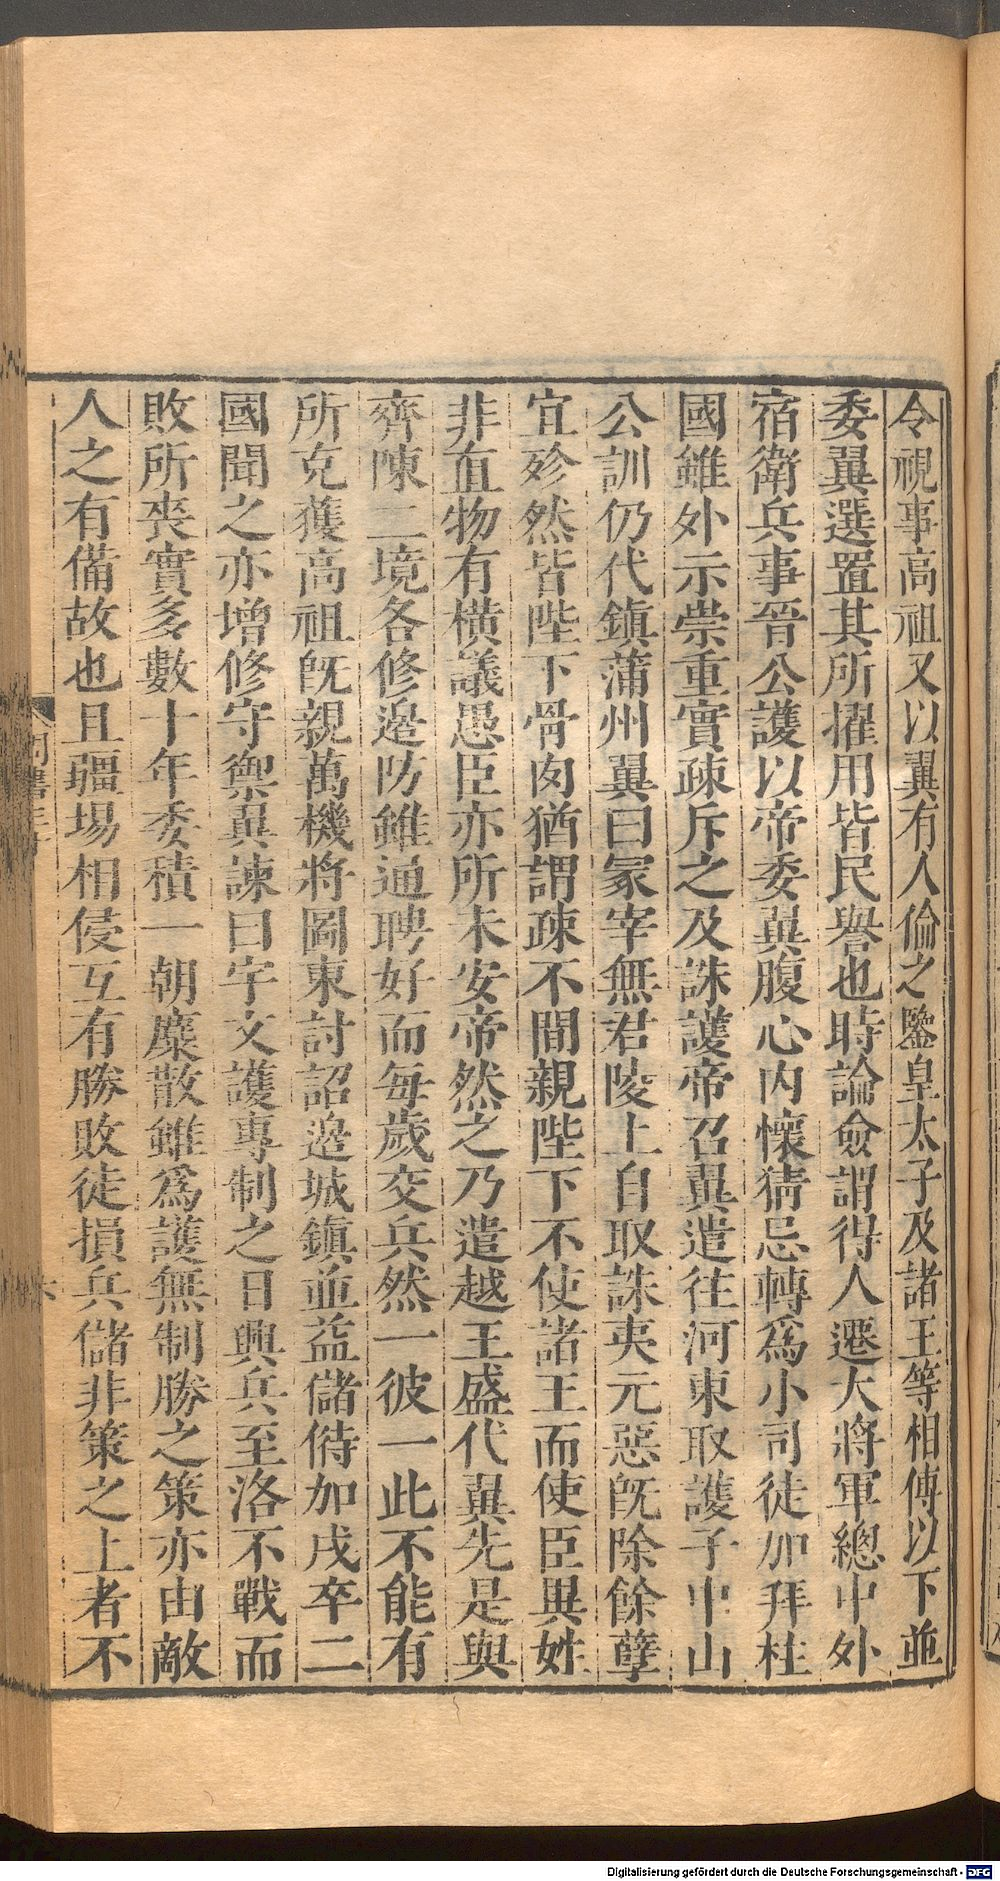 令視事高祖又以翼有人倫之鑒皇太子及諸王等相傅以下並
委翼選置其所擢用皆民譽也時論僉謂得人遷大將軍總中外
宿衛兵事晉公護以帝委翼腹心內懷猜忌轉爲小司徒加拜柱
國雖外示崇重實疎斥之及誅護帝召翼遣往河東取護子中山
公訓仍代鎮蒲州翼曰冢宰無君陵上自取誅夷元惡旣除餘孽
宜殄然皆陛下骨肉猶謂疎不間親陛下不使諸王而使臣異姓
非直物有橫議愚臣亦所未安帝然之乃遣越王盛代翼先是與
齊陳二境各修邊防雖通聘好而每歲交兵然一彼一此不能有
所克獲高祖旣親萬機將圖東討詔邊城鎮並益儲偫加戍卒二
國聞之亦增修守禦翼諫曰宇文護專制之日興兵至洛不戰而
敗所喪實多數十年委積一朝麋散雖爲護無制勝之策亦由敵
人之有備故也且疆場相侵互有勝敗徒損兵儲非策之上者不
周書三十
六
Digitalisierung gefördert durch die Deutsche Forschungsgemeinschaft - DFG